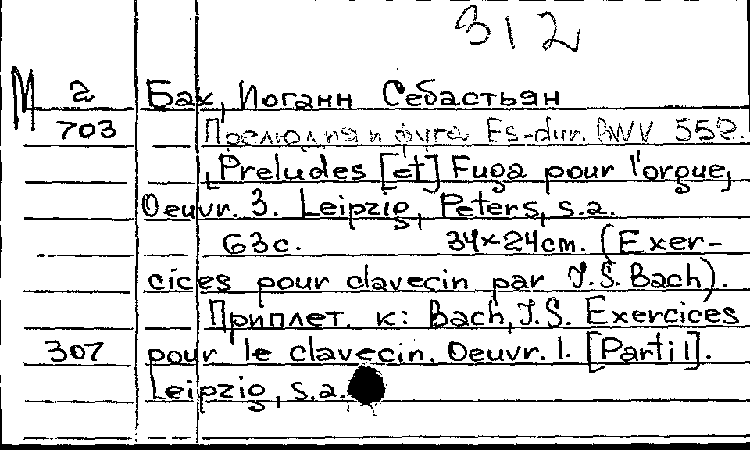 312
М а Бах, Иоганн Себастьян
703 Прелюдия и фуга Es-dur. BWV 552.
Preludes [et] Fuga pour l'orgue,
Oeuvr. 3. Leipzig, Peters, s.a.
63с. 34×24cm. (Exer-
cices pour clavecin par J.S. Bach).
Приплет. к: Bach, J.S. Exercices
307 pour le clavecin. Oeuvr. 1. [Parti 1].
Leipzig, s.a.